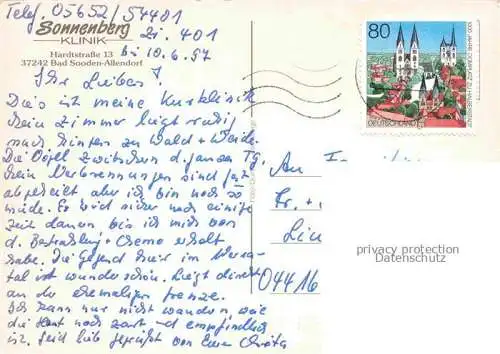 Telef. 05652/54401
Sonnenberg
KLINIK
Zi. 401
Hardtstraße 13
37242 Bad Sooden-Allendorf
bis 10.6.97
Ihr Lieben!
Dies ist meine Kurklinik
Mein Zimmer liegt ruhig
nach hinten zu Wald + Weide.
Die Vögel zwitschern d. ganzen Tg.
Mein Verbrennungen sind fast
abgeheilt aber ich bin noch so
müde. Es wird sicher noch einige
Zeit dauern bis ich mich von
d. Bestrahlung + Chemo erholt
habe. Die Gegend hier im Werra-
tal ist wunderschön. Liegt direkt
an der ehemaligen Grenze.
Ich kann nur nicht wandern, weil
die Haut noch zart und empfindlich
ist. Seid lieb gegrüßt von Eurer
80
DEUTSCHLAND
An
Fr. +
Lin
04416
privacy protection
Datenschutz